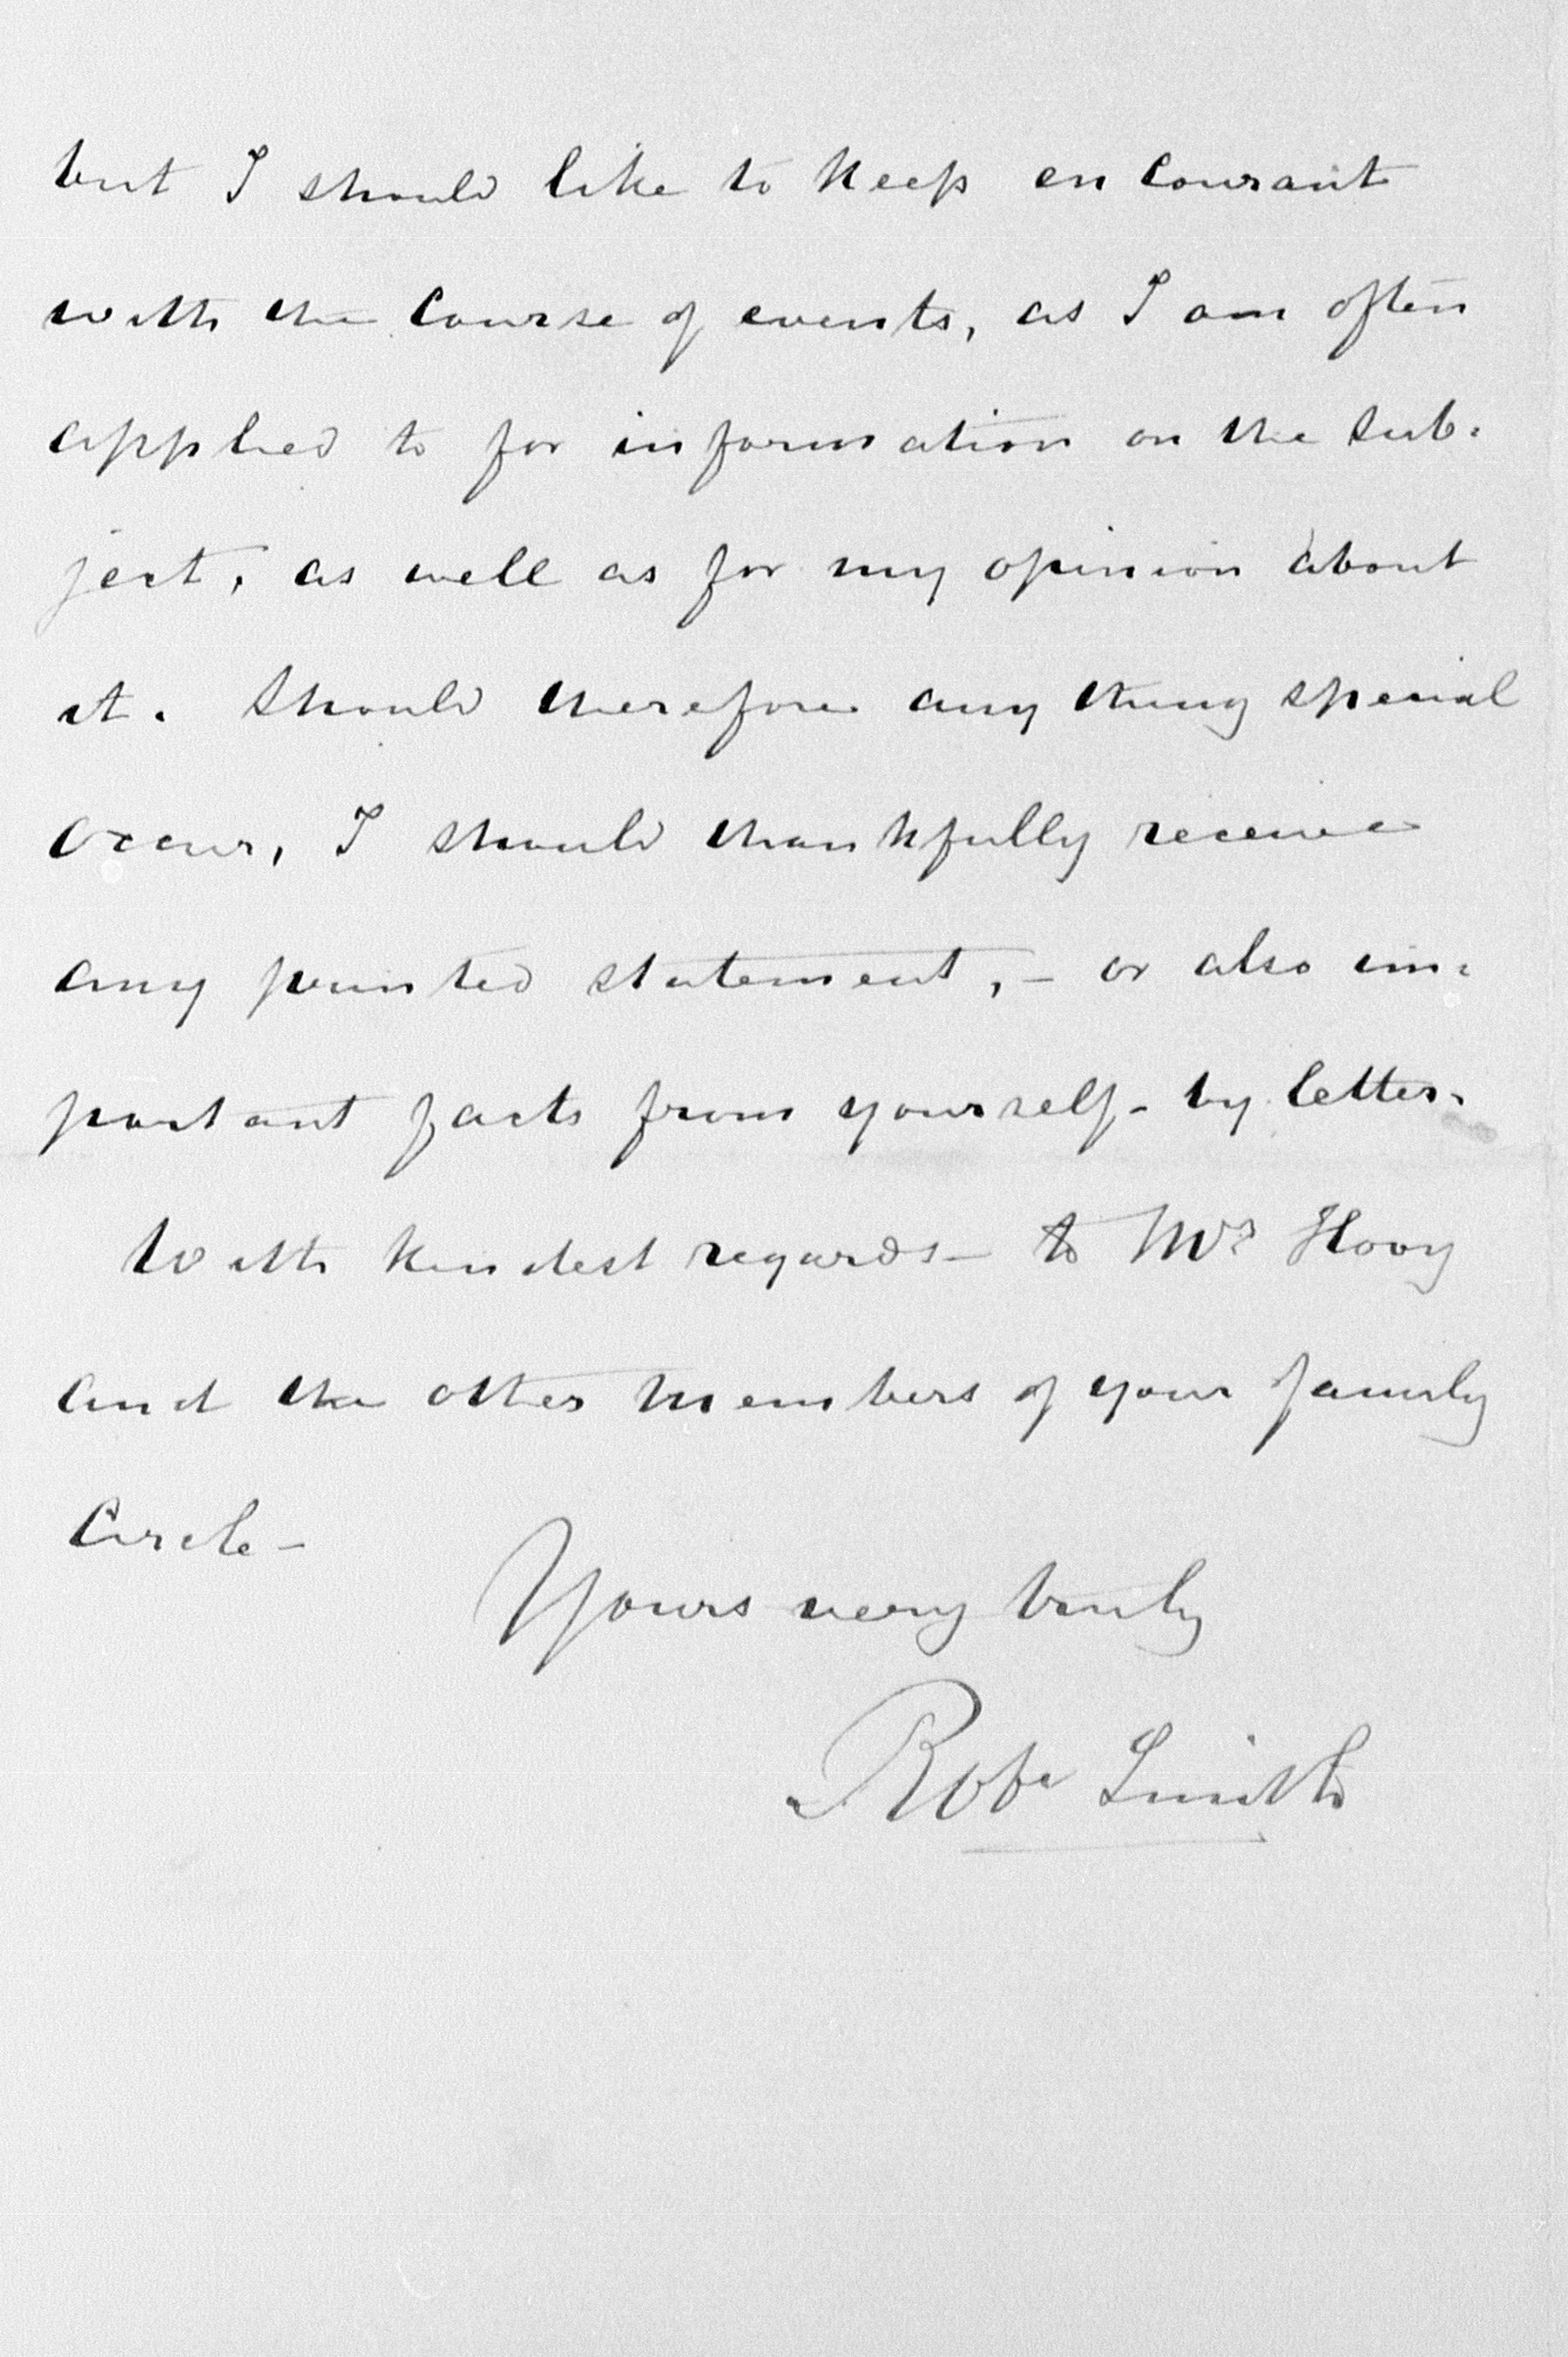 but I should like to keep en courant
with the course of events, as I am often
applied to for information on the sub-
ject, as well as for my opinion about
it. Should therefore any thing special
occur, I should thankfully receive
any printed statement, – or also im-
portant facts from yourself – by letter.
With kindest regards – to Mrs
and the other members of your family
Circle –
Yours very truly
Smith